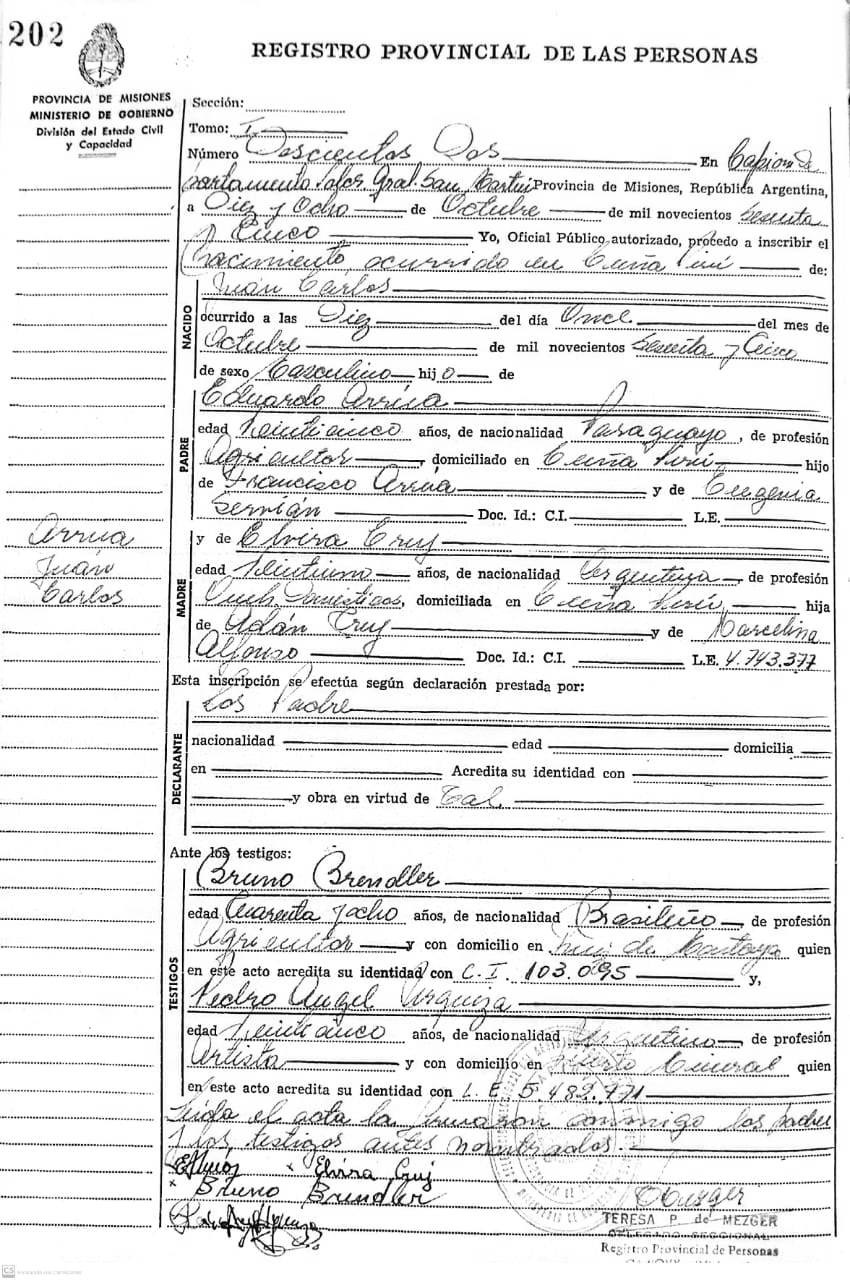 202
REGISTRO PROVINCIAL DE LAS PERSONAS
PROVINCIA DE MISIONES
MINISTERIO DE GOBIERNO
División del Estado Civil
y Capacidad
Sección:
Tomo: I
Número Doscientos Dos En Capiovi De
partamento Ldor. Gral. San Martin Provincia de Misiones, República Argentina,
a Diez y Ocho de Octubre de mil novecientos Sesenta
y Cinco Yo, Oficial Público autorizado, procedo a inscribir el
Nacimiento ocurrido en Cuña Pirú de:
NACIDO
Juán Carlos
ocurrido a las Diez del día Once del mes de
Octubre de mil novecientos Sesenta y Cinco
de sexo Masculino hijo de
PADRE
Eduardo Arrúa
edad Veinticinco años, de nacionalidad Paraguayo, de profesión
Agricultor, domiciliado en Cuña Pirú hijo
de Francisco Arrúa y de Eugenia
Servián Doc. Id.: C.I. L.E.
Arrua
Juán
Carlos
MADRE
y de Elvira Cruz
edad Veintiuno años, de nacionalidad Argentina de profesión
Queh. Domésticos, domiciliada en Cuña Pirú, hija
de Adán Cruz y de Marcelina
Alfonso Doc. Id.: C.I. L.E. 4.743.377
Esta inscripción se efectúa según declaración prestada por:
DECLARANTE
Los Padre
nacionalidad edad domicilia
en Acredita su identidad con
y obra en virtud de Tal.
Ante los testigos:
TESTIGOS
Bruno Brendler
edad Cuarenta y ocho años, de nacionalidad Brasileño de profesión
Agricultor y con domicilio en Ruiz de Montoya quien
en este acto acredita su identidad con C. I. 103.095 y,
Pedro Angel Urquiza
edad Veinticinco años, de nacionalidad Argentino de profesión
Artista y con domicilio en Puerto Mineral quien
en este acto acredita su identidad con L. E. 5.489.771
Leída el acta la firmaron conmigo los padres
y los testigos antes nombrados.
Elvira Cruz
Bruno Brendler
TERESA P. de MEZGER
DELEGADO SECCIONAL
Registro Provincial de Personas
CS